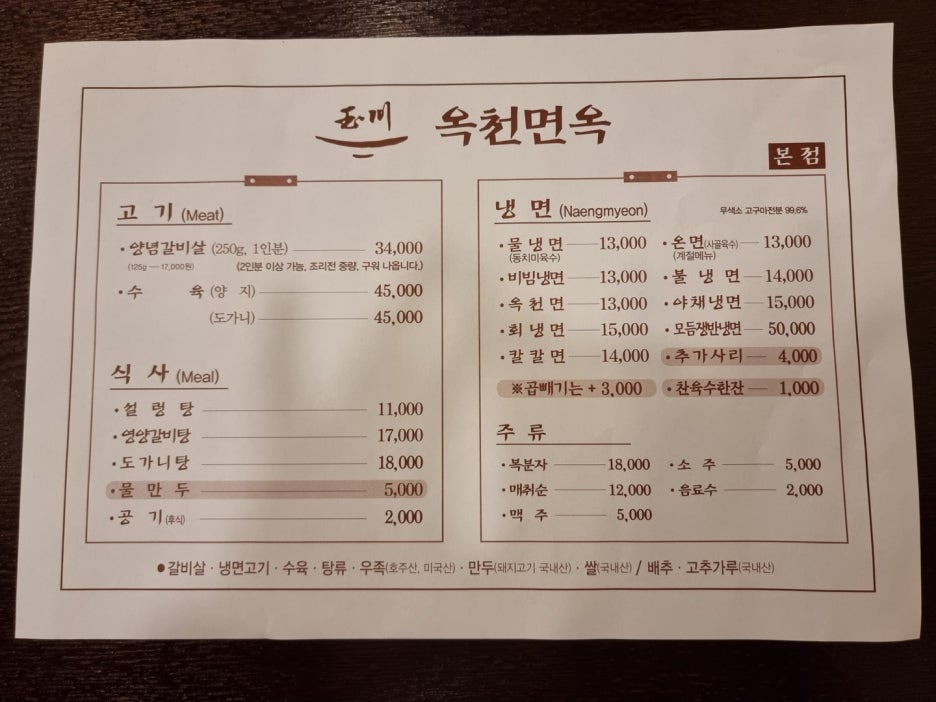 玉川 옥천면옥
본점
고 기 (Meat)
• 양념갈비살 (250g, 1인분) 34,000
(125g — 17,000원) (2인분 이상 가능, 조리전 중량, 구워 나옵니다.)
• 수 육 (양 지) 45,000
(도가니) 45,000
식 사 (Meal)
• 설 렁 탕 11,000
• 영양갈비탕 17,000
• 도가니탕 18,000
• 물 만 두 5,000
• 공 기 (후식) 2,000
냉 면 (Naengmyeon) 무색소 고구마전분 99.6%
• 물 냉 면 13,000
(동치미육수)
• 비빔냉면 13,000
• 옥 천 면 13,000
• 회 냉 면 15,000
• 칼 칼 면 14,000
※곱빼기는 + 3,000
• 온 면 (사골육수) 13,000
(계절메뉴)
• 불 냉 면 14,000
• 야채냉면 15,000
• 모듬쟁반냉면 50,000
• 추가사리 4,000
• 찬육수한잔 1,000
주 류
• 복분자 18,000
• 매취순 12,000
• 맥 주 5,000
• 소 주 5,000
• 음료수 2,000
● 갈비살 · 냉면고기 · 수육 · 탕류 · 우족(호주산, 미국산) · 만두(돼지고기 국내산) · 쌀(국내산) / 배추 · 고추가루(국내산)